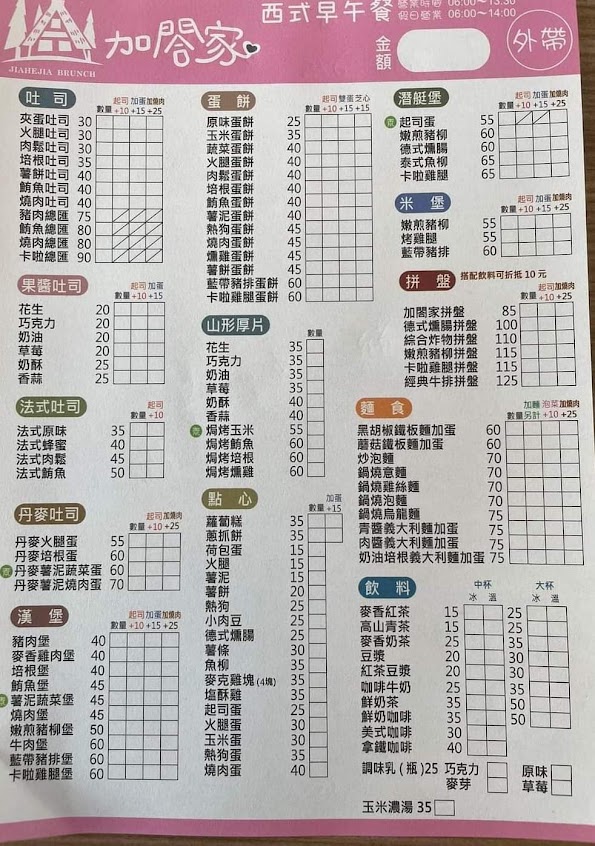 加閤家
JIAHEJIA BRUNCH
西式早午餐
營業時間 06:00~13:30
假日營業 06:00~14:00
金額
外帶
吐司
起司 加蛋 加燒肉
數量 +10 +15 +25
夾蛋吐司 30
火腿吐司 30
肉鬆吐司 30
培根吐司 35
薯餅吐司 40
鮪魚吐司 40
燒肉吐司 40
豬肉總匯 75
鮪魚總匯 80
燒肉總匯 80
卡啦總匯 90
果醬吐司
起司 加蛋
數量 +10 +15
花生 20
巧克力 20
奶油 20
草莓 20
奶酥 25
香蒜 25
法式吐司
起司
數量 +10
法式原味 35
法式蜂蜜 40
法式肉鬆 45
法式鮪魚 50
丹麥吐司
起司 加燒肉
數量 +10 +25
丹麥火腿蛋 55
丹麥培根蛋 60
丹麥薯泥蔬菜蛋 60
丹麥薯泥燒肉蛋 70
漢堡
起司 加蛋 加燒肉
數量 +10 +15 +25
豬肉堡 40
麥香雞肉堡 40
培根堡 40
鮪魚堡 45
薯泥蔬菜堡 45
燒肉堡 45
嫩煎豬柳堡 50
牛肉堡 60
藍帶豬排堡 60
卡啦雞腿堡 60
蛋餅
起司 雙蛋 芝心
數量 +10 +15 +25
原味蛋餅 25
玉米蛋餅 35
蔬菜蛋餅 40
火腿蛋餅 40
肉鬆蛋餅 40
培根蛋餅 40
鮪魚蛋餅 40
薯泥蛋餅 40
熱狗蛋餅 45
燒肉蛋餅 45
燻雞蛋餅 45
薯餅蛋餅 45
藍帶豬排蛋餅 60
卡啦雞腿蛋餅 60
山形厚片
數量
花生 35
巧克力 35
奶油 35
草莓 35
奶酥 40
香蒜 40
焗烤玉米 55
焗烤鮪魚 60
焗烤培根 60
焗烤燻雞 60
點心
加蛋
數量 +15
蘿蔔糕 35
蔥抓餅 35
荷包蛋 15
火腿 15
薯泥 15
薯餅 20
熱狗 25
小肉豆 25
德式燻腸 25
薯條 30
魚柳 35
麥克雞塊(4塊) 35
塩酥雞 35
起司蛋 25
火腿蛋 30
玉米蛋 30
熱狗蛋 35
燒肉蛋 40
潛艇堡
起司 加蛋 加燒肉
數量 +10 +15 +25
起司蛋 55
嫩煎豬柳 60
德式燻腸 60
泰式魚柳 65
卡啦雞腿 65
米堡
起司 加蛋 加燒肉
數量 +10 +15 +25
嫩煎豬柳 55
烤雞腿 55
藍帶豬排 60
拼盤 搭配飲料可折抵10元
起司 加燒肉
數量 +10 +25
加閤家拼盤 85
德式燻腸拼盤 100
綜合炸物拼盤 110
嫩煎豬柳拼盤 115
卡啦雞腿拼盤 115
經典牛排拼盤 125
麵食
加麵 泡菜 加燒肉
數量 另計 +10 +25
黑胡椒鐵板麵加蛋 60
蘑菇鐵板麵加蛋 60
炒泡麵 70
鍋燒意麵 70
鍋燒雞絲麵 70
鍋燒泡麵 70
鍋燒烏龍麵 70
青醬義大利麵加蛋 75
肉醬義大利麵加蛋 75
奶油培根義大利麵加蛋 75
飲料
中杯 大杯
冰 溫 冰 溫
麥香紅茶 15 25
高山青茶 15 25
麥香奶茶 25 35
豆漿 20 30
紅茶豆漿 20 30
咖啡牛奶 25 35
鮮奶茶 35 50
鮮奶咖啡 35 50
美式咖啡 30
拿鐵咖啡 40
調味乳(瓶)25 巧克力 原味
麥芽 草莓
玉米濃湯 35